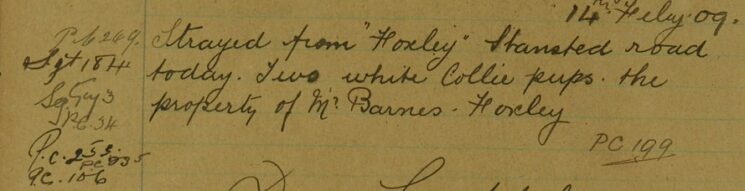 14th Feby. 09.
P.C 269.
Strayed from "Hoxley" Stansted road
Sgt 184
today. Two white Collie pups. the
property of Mr Barnes - Hoxley
P.C 34
PC 199
P.C. 253.
PC 235
P.C. 106